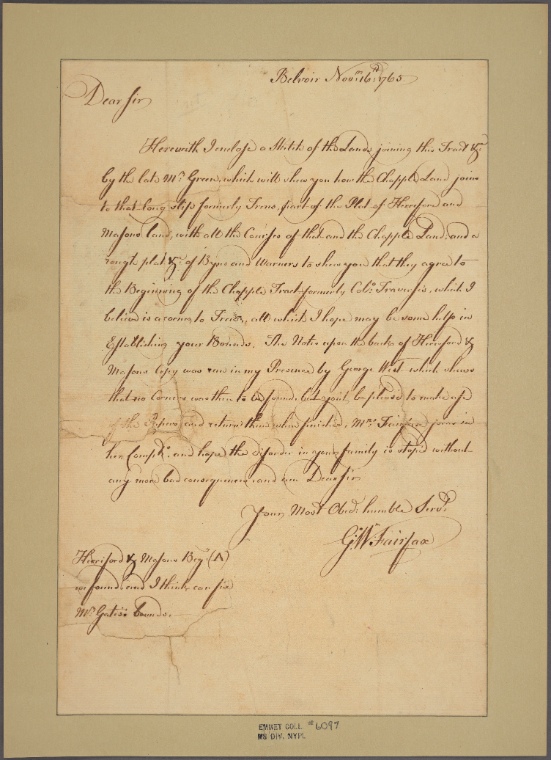 Belvoir Novr. 16th 1765
Dear Sir
Herewith I enclose a Sketch of the Lands joining this Tract &c
by the late Mr Green, which will shew you how the Chapple Land joins
to that long slip formerly part of the Plat of Hereford and
Masons land, with all the Courses of that and the Chapple Land, and a
rough plat &c of Byne and Warners to shew you that they agree to
the Beginning of the Chapple Tract formerly Colo. which I
believe is a corner to all which I hope may be some help in
Establishing your Bounds. The Notes upon the back of Hereford &
Masons Copy was in my Presence by George West which shews
that no Corner was then to be found, but you'l be pleased to make use
of the Papers, and return them when finished, Mrs. Fairfax joins in
her Complts. and hope the disorder in your family is stoped without
any more bad consequences and am Dear Sir
Your Most Obedt. humble Servt.
G: Wm Fairfax
Hereford & Masons Beg (A)
we found and I think can find
Mr bounds.
EMMET COLL. #6097
MS DIV. NYPL